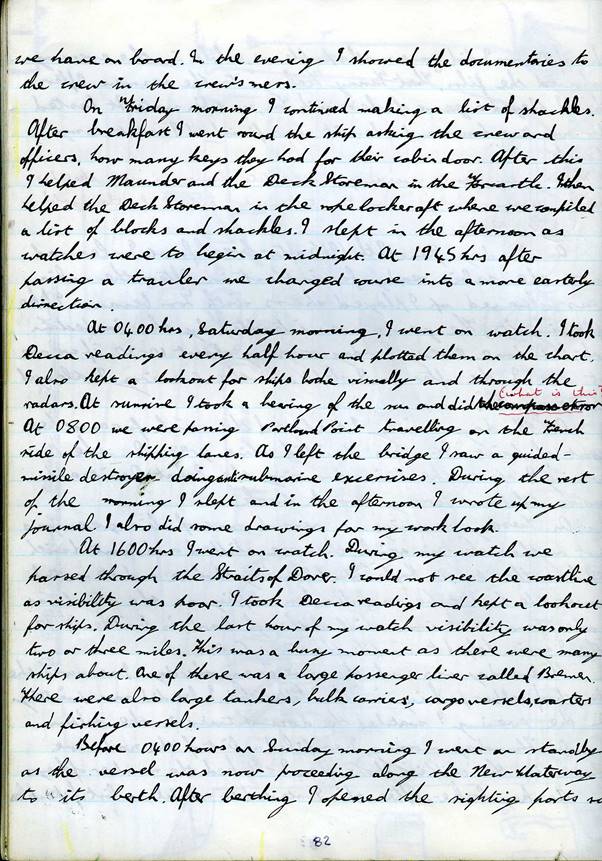 we have on board. In the evening I showed the documentaries to
the crew in the crew's mess.
On Friday morning I continued making a list of shackles.
After breakfast I went round the ship asking the crew and
officers, how many keys they had for their cabin door. After this
I helped Maunder and the Deck Storeman in the Forcastle. I then
helped the Deck Storeman in the rope locker aft where we compiled
a list of blocks and shackles. I slept in the afternoon as
watches were to begin at midnight. At 1945 hrs after
passing a trawler we changed course into a more easterly
direction.
At 0400 hrs, Saturday morning, I went on watch. I took
Decca readings every half hour and plotted them on the chart.
I also kept a lookout for ships bothe visually and through the
(what is this?
radars. At sunrise I took a bearing of the sun and did the compass error
At 0800 we were passing Portland Point travelling on the French
side of the shipping lanes. As I left the bridge I saw a guided-
missile destroyer doing anti submarine excersises. During the rest
of the morning I slept and in the afternoon I wrote up my
journal. I also did some drawings for my work book.
At 1600 hrs I went on watch. During my watch we
passed through the Straits of Dover. I could not see the coastline
as visibility was poor. I took Decca readings and kept a lookout
for ships. During the last hour of my watch visibility was only
two or three miles. This was a busy moment as there were many
ships about. One of these was a large passenger liner called Bremen.
There were also large tankers, bulk carriers, cargo vessels, coasters
and fishing vessels.
Before 0400 hours on Sunday morning I went on standby
as the vessel was now proceeding along the New Waterway
to its berth. After berthing I opened the sighting ports so
82